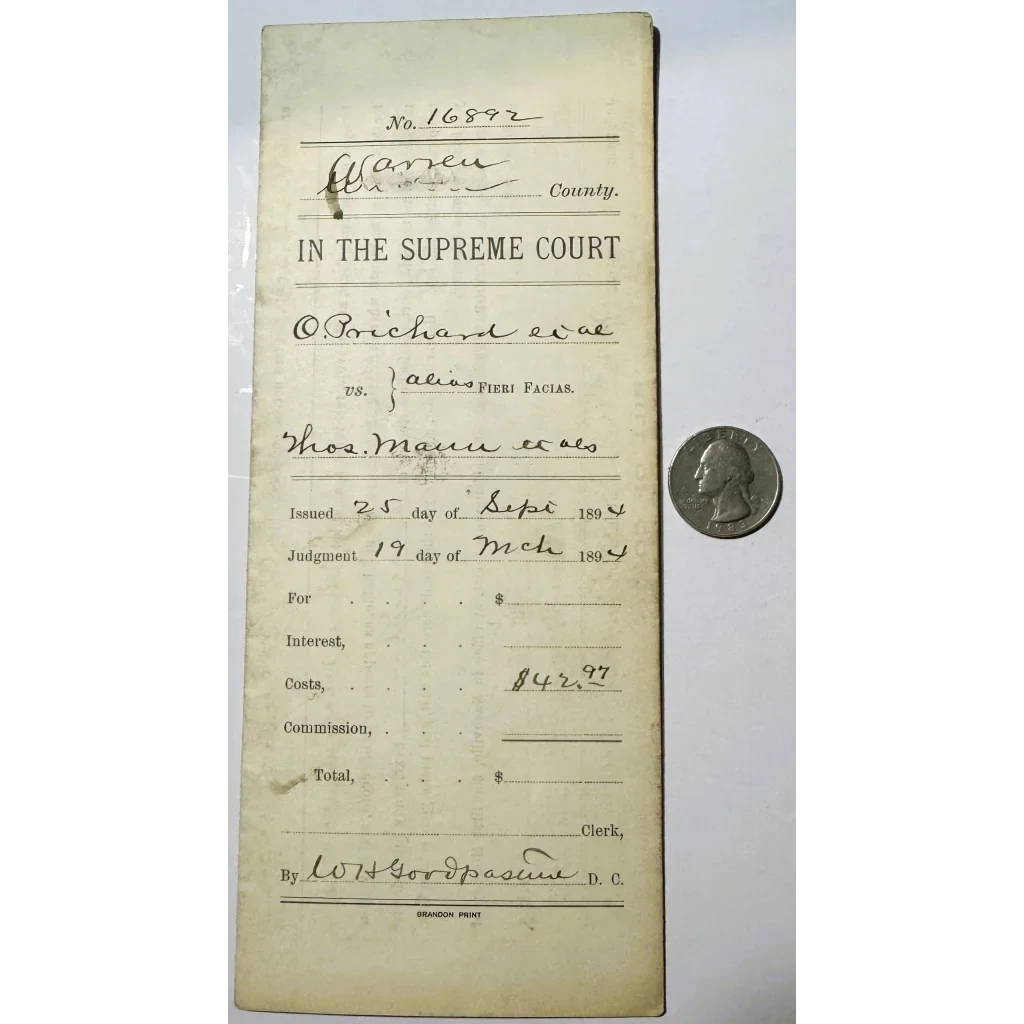 No. 16892
Warren County.
IN THE SUPREME COURT
O. Prichard et al
vs. } alias FIERI FACIAS.
Thos. Mann et als
Issued 25 day of Sept 1894
Judgment 19 day of Mch 1894
For . . . . $
Interest, . . .
Costs, . . . . $42.97
Commission, . . .
Total, . . . $
Clerk,
By W H Goodpasture D. C.
BRANDON PRINT
LIBERTY